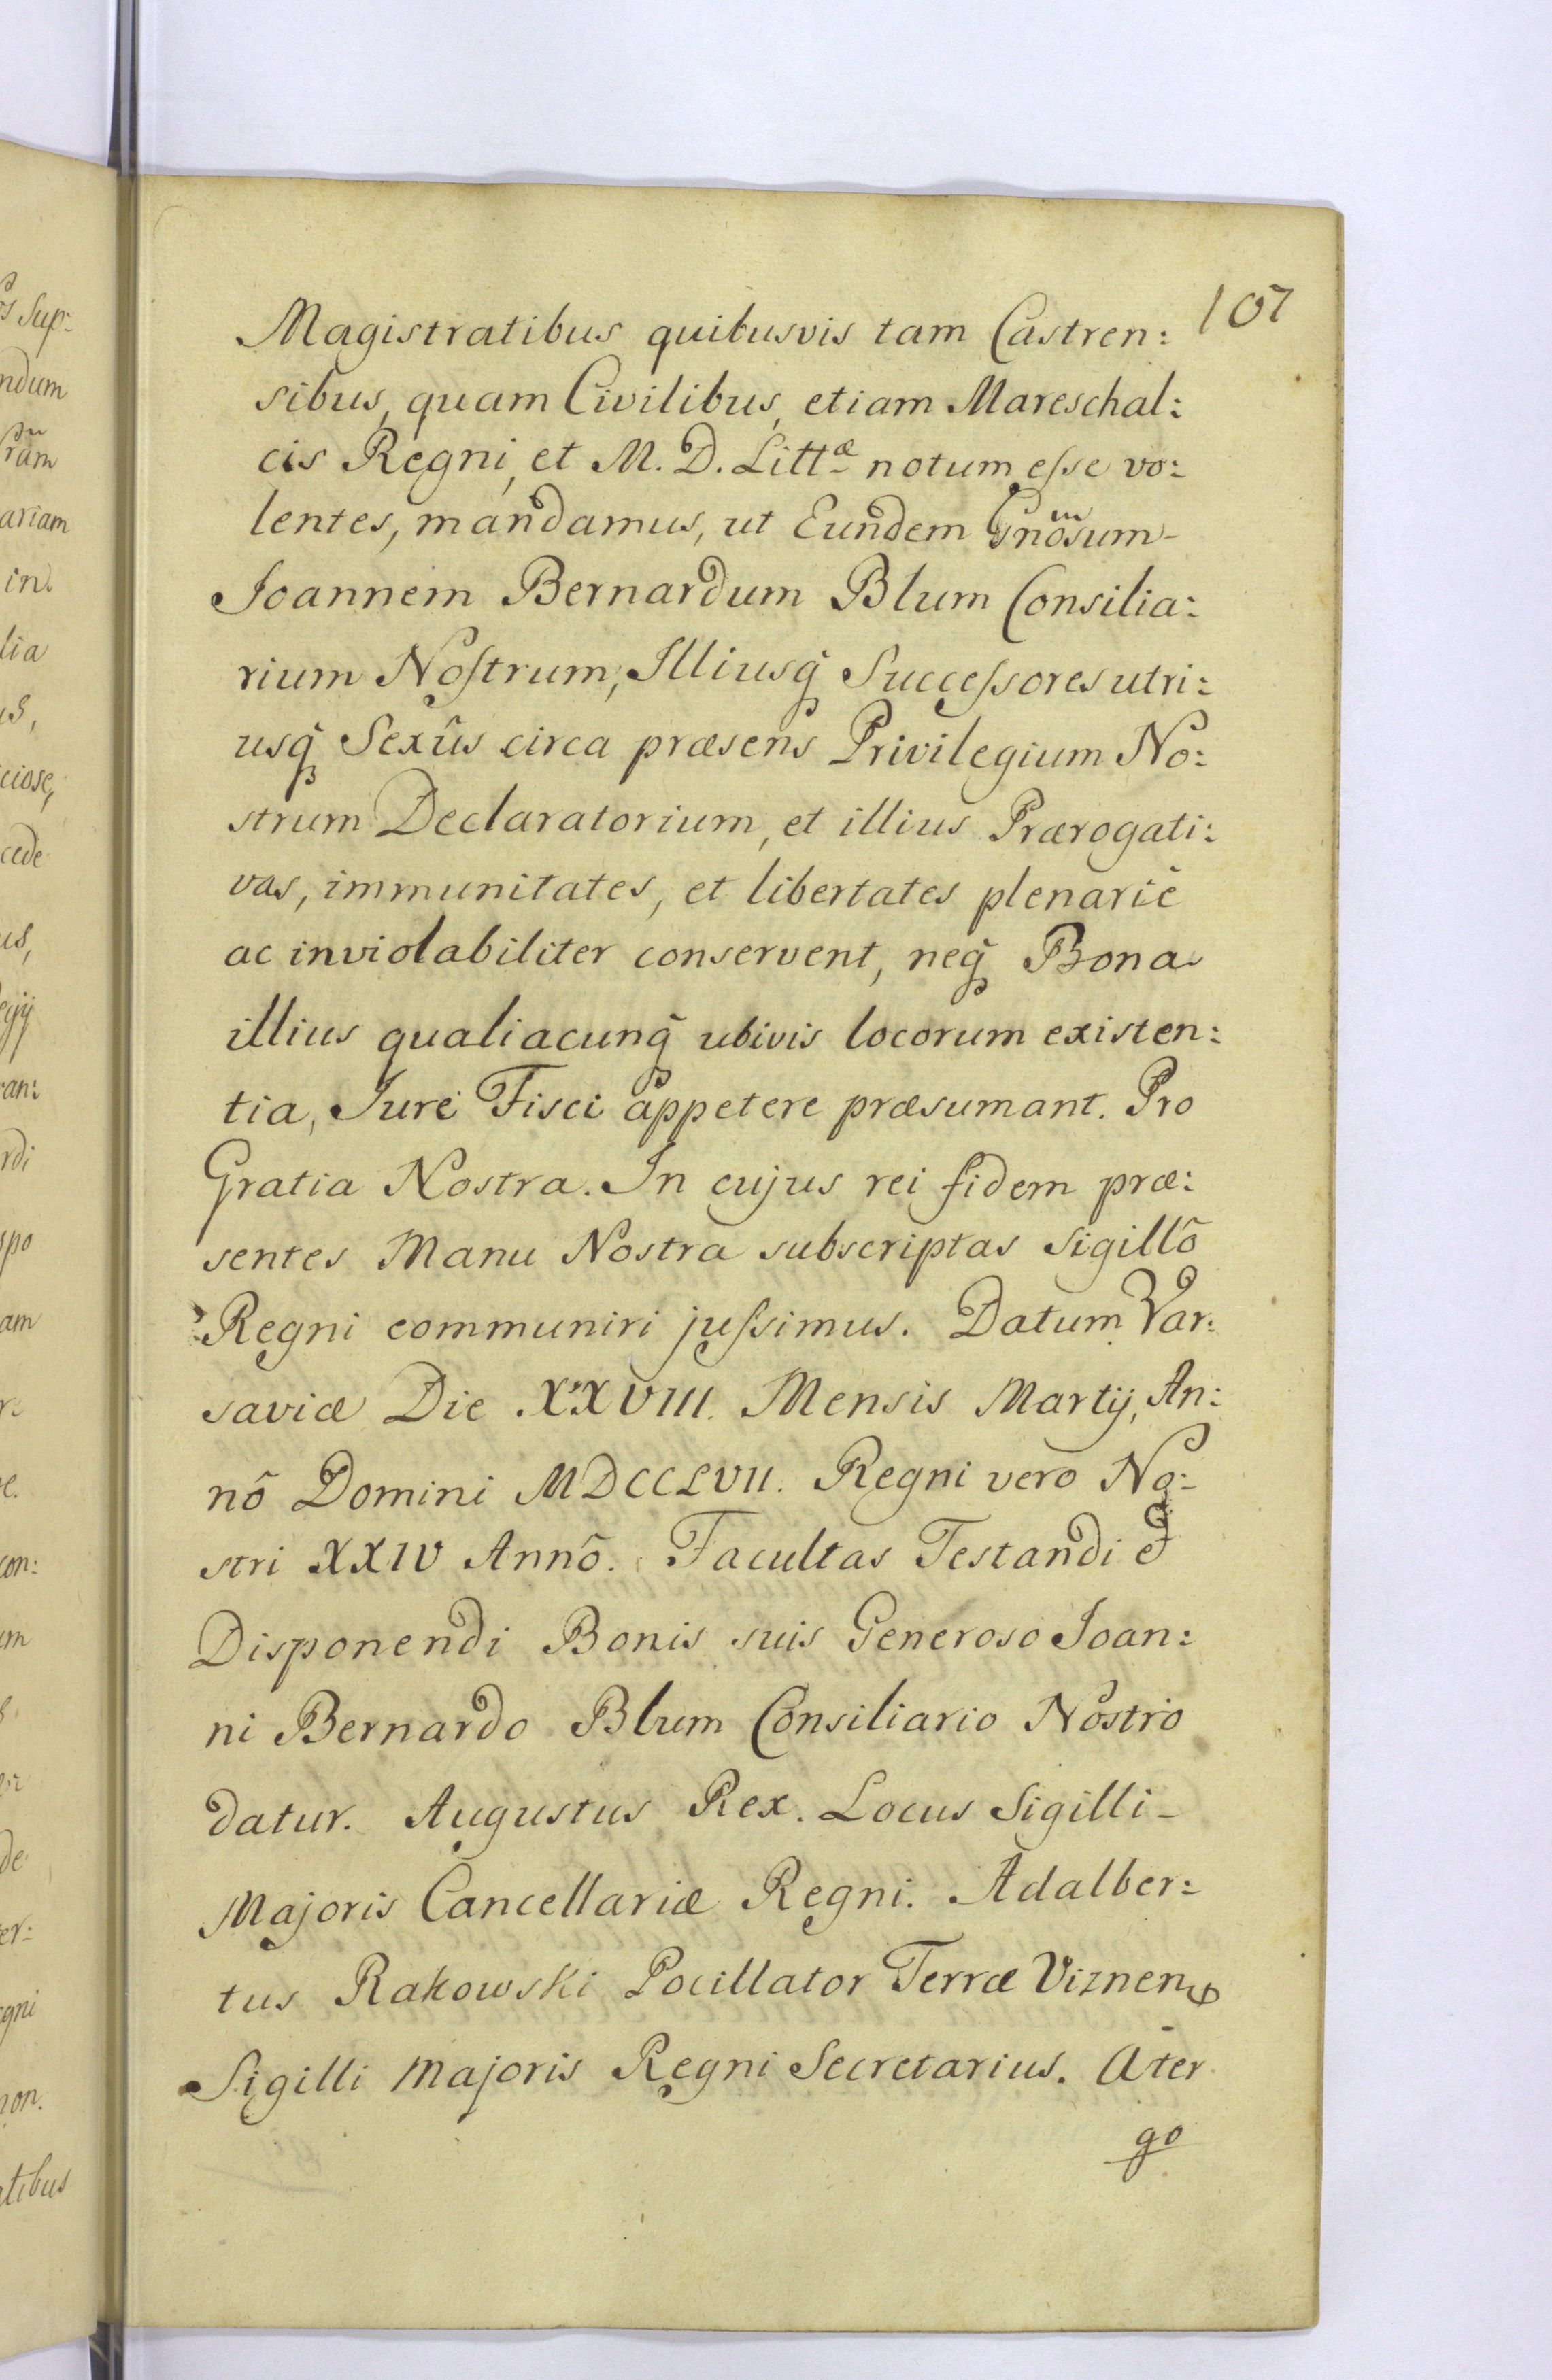 107
Magistratibus quibusvis tam Castren:
sibus, quam Civilibus, etiam Mareschal:
cis Regni, et M. D. Littæ notum eſse vo:
lentes, mandamus, ut Eundem Gnōsum
Joannem Bernardum Blum Consilia:
rium Noſtrum, Illiusq̃ Succeſsores utri:
usq̃ Sexûs circa præsens Privilegium No:
strum Declaratorium, et illius Prærogati:
vas, immunitates, et libertates plenariè
ac inviolabiliter conservent, neq̃ Bona
illius qualiacunq̃ ubivis locorum existen:
tia, Jure Fisci appetere præsumant. Pro
Gratia Nostra. In cujus rei fidem præ:
sentes Manu Nostra subscriptas Sigillô
Regni communiri juſsimus. Datum Var:
saviæ Die XXVIII. Mensis Martij, An:
nô Domini MDCCLVII. Regni vero No:
stri XXIV Annô. Facultas Testandi et
Disponendi Bonis suis Generoso Joan:
ni Bernardo Blum Consiliario Nostro
datur. Augustus Rex. Locus Sigilli
Majoris Cancellariæ Regni. Adalber:
tus Rakowski Pocillator Terræ Viznen
Sigilli Majoris Regni Secretarius. A ter
go